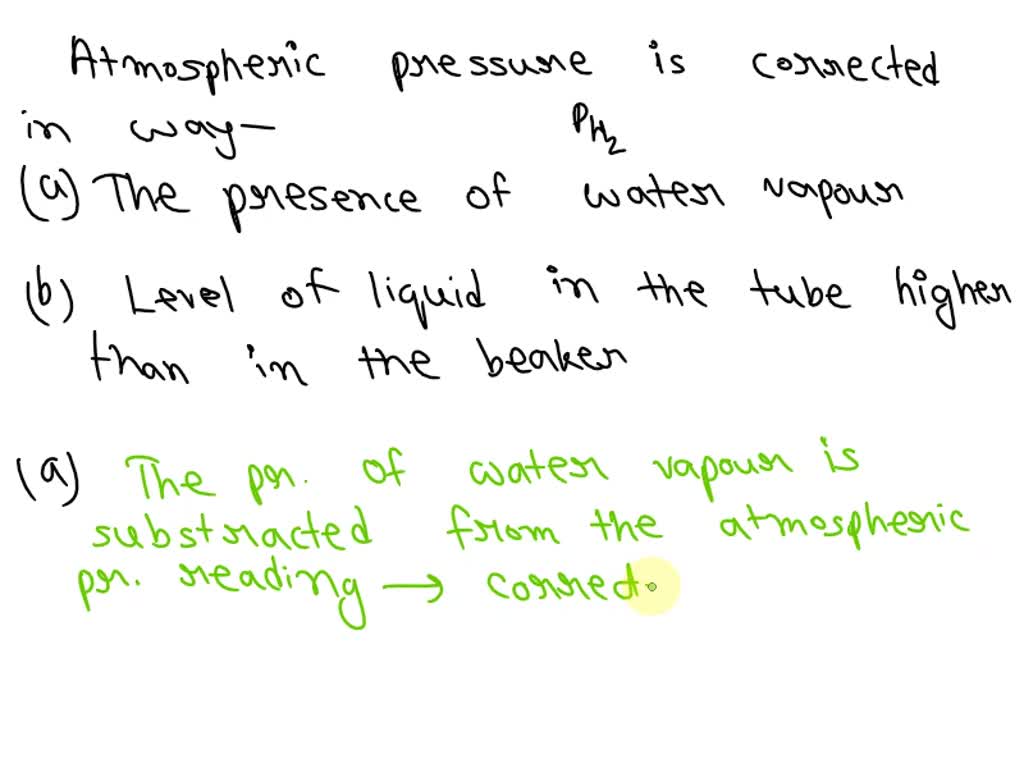 Atmospheric pressure is corrected
in way— PH2
(a) The presence of water vapour
(b) Level of liquid in the tube higher
than in the beaker
(a) The pr. of water vapour is
substracted from the atmospheric
pr. reading → correct